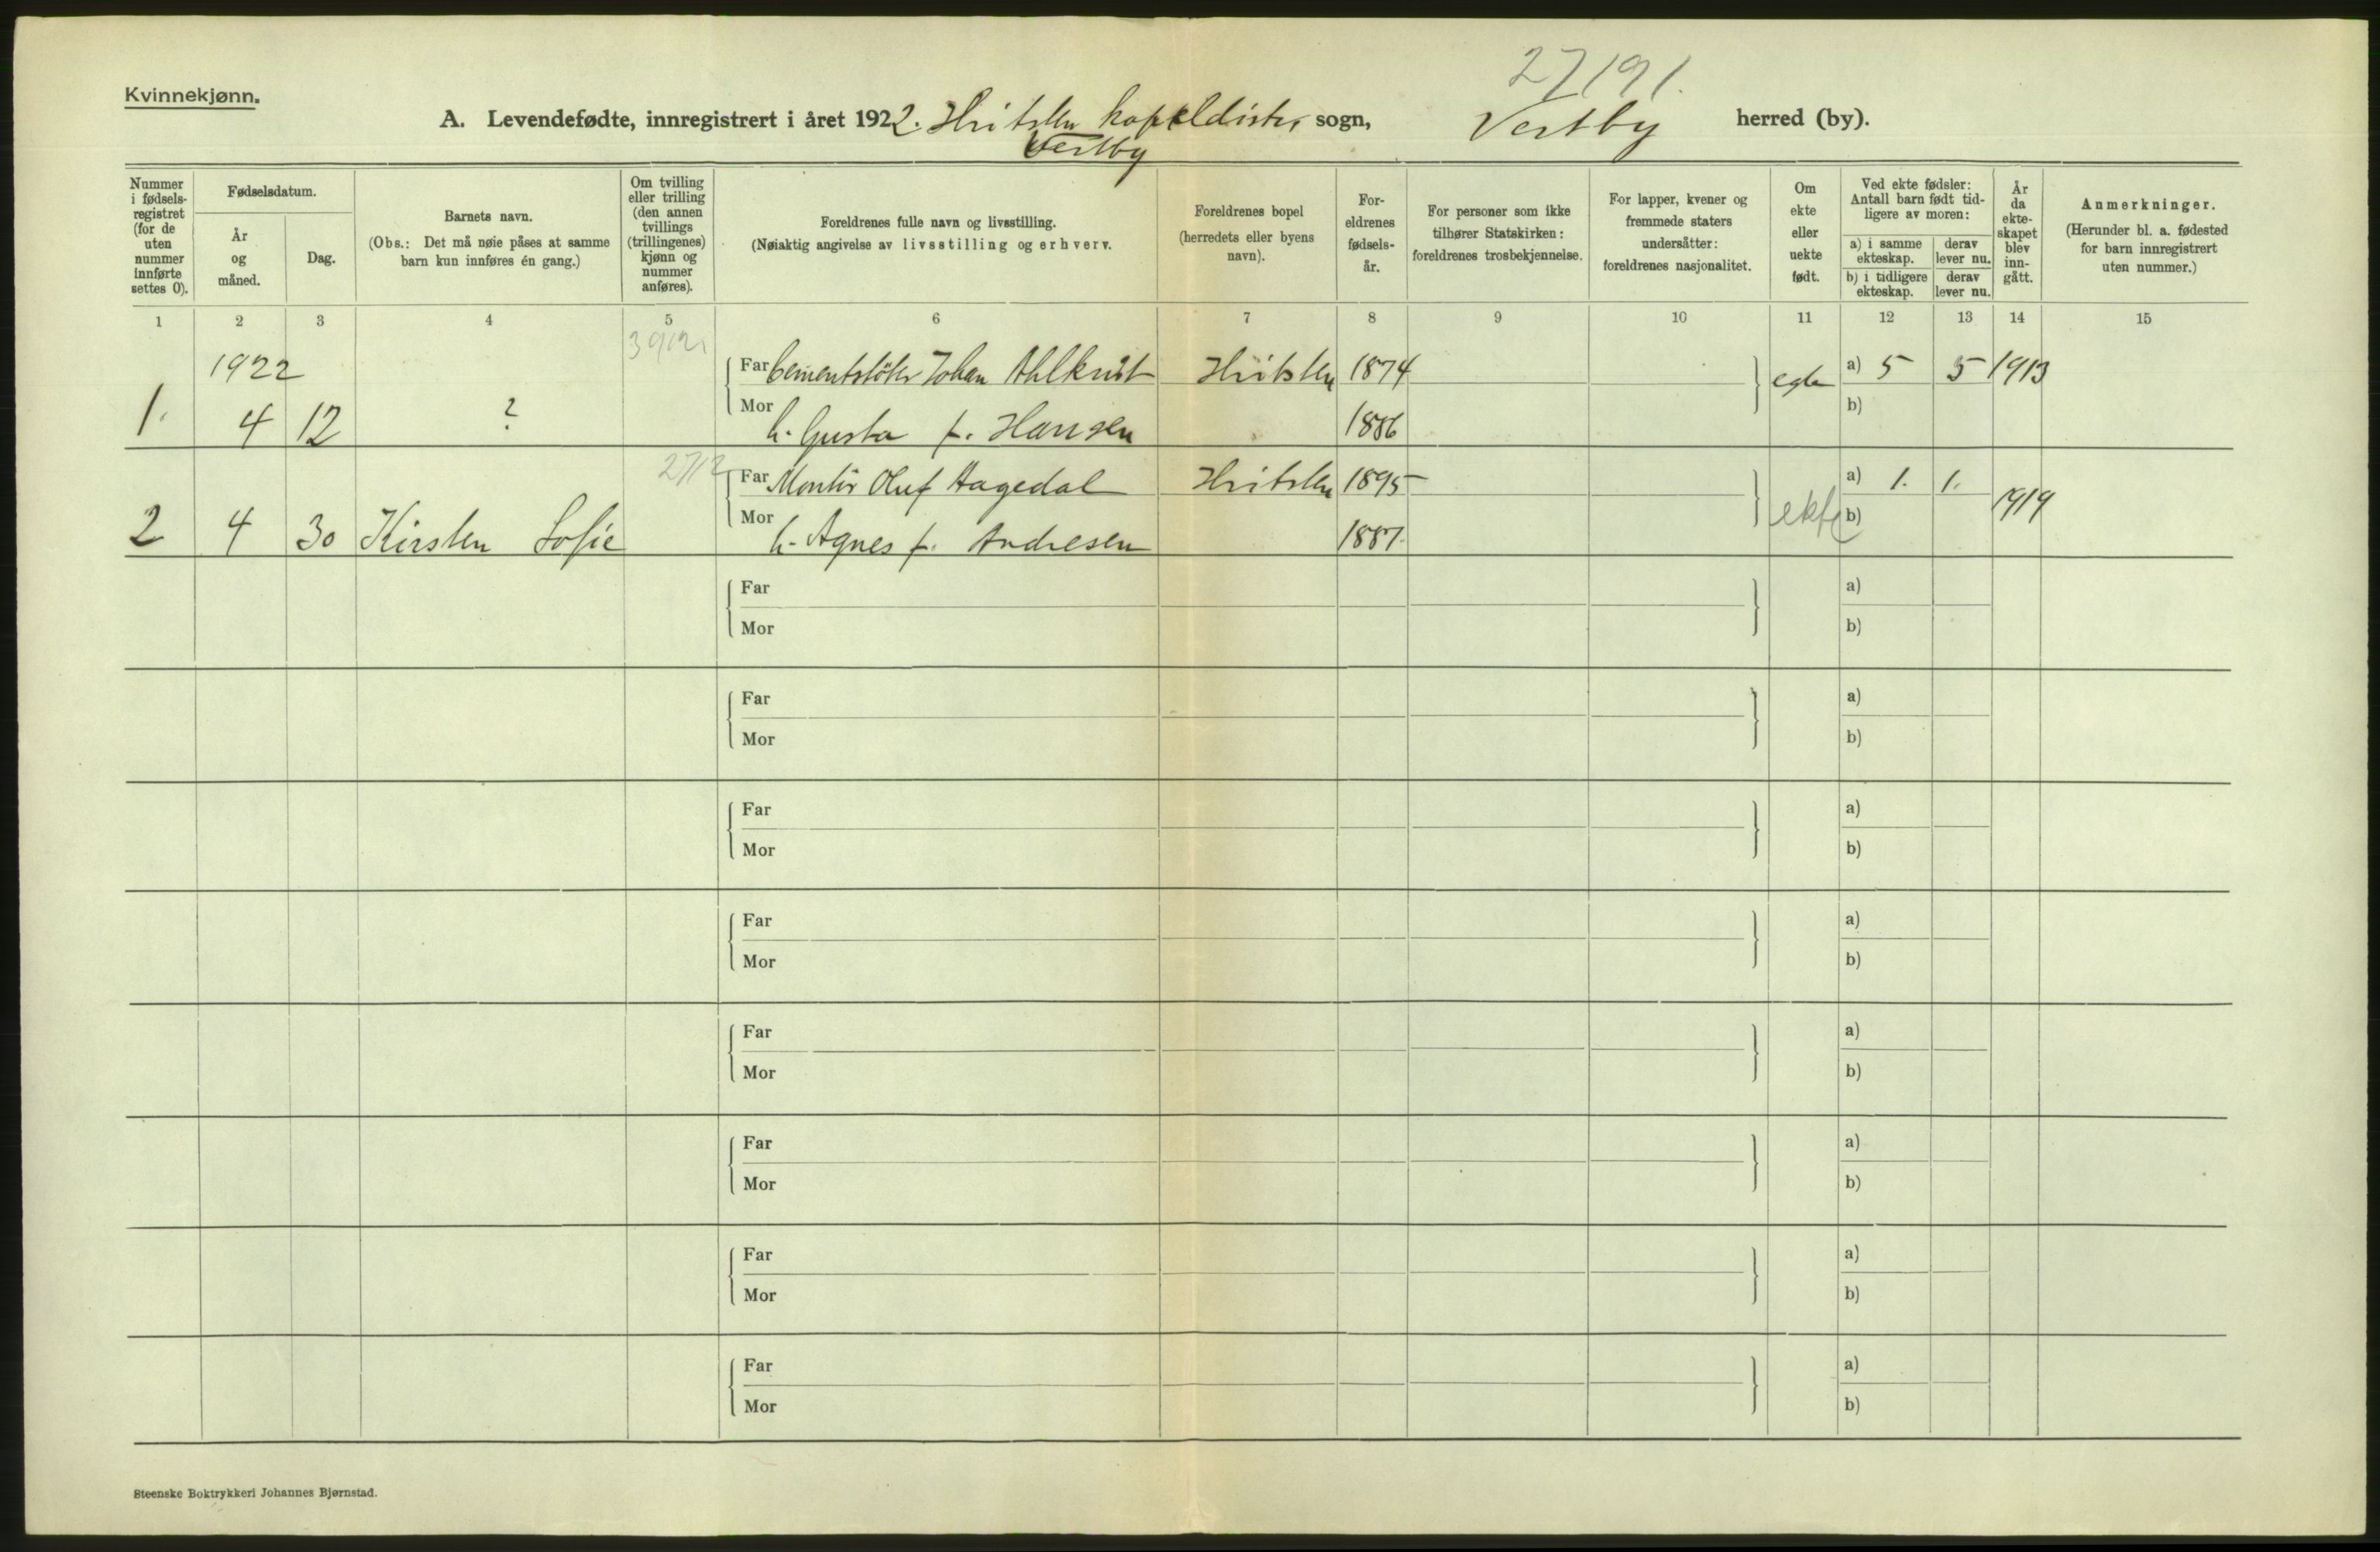 27191.
Kvinnekjønn.
A. Levendefødte, innregistrert i året 1922. Hvitsten kapeldistr. sogn, Vestby herred (by).
Vestby
Nummer i fødsels- registret (for de uten nummer innførte settes 0).
Fødselsdatum.
År og måned.
Dag.
Barnets navn.
(Obs.: Det må nøie påses at samme barn kun innføres én gang.)
Om tvilling eller trilling (den annen tvillings (trillingenes) kjønn og nummer anføres).
Foreldrenes fulle navn og livsstilling.
(Nøiaktig angivelse av livsstilling og erhverv.
Foreldrenes bopel (herredets eller byens navn).
For- eldrenes fødsels- år.
For personer som ikke tilhører Statskirken: foreldrenes trosbekjennelse.
For lapper, kvener og fremmede staters undersåtter: foreldrenes nasjonalitet.
Om ekte eller uekte født.
Ved ekte fødsler: Antall barn født tid- ligere av moren:
a) i samme ekteskap.
derav lever nu.
b) i tidligere ekteskap.
derav lever nu.
År da ekte- skapet blev inn- gått.
Anmerkninger.
(Herunder bl. a. fødested for barn innregistrert uten nummer.)
1 2 3 4 5 6 7 8 9 10 11 12 13 14 15
1922
Far Cementstöber Johan Ahlkvist Hvitsten 1874 egte a) 5 5 1913
1. 4 12 ? Mor h. Gusta f. Hansen 1886 b)
Far Montör Oluf Hagedal Hvitsten 1895 ekte a) 1. 1. 1919
2 4 30 Kirsten Sofie Mor h. Agnes f. Andresen 1887. b)
Far a)
Mor b)
Far a)
Mor b)
Far a)
Mor b)
Far a)
Mor b)
Far a)
Mor b)
Far a)
Mor b)
Far a)
Mor b)
Far a)
Mor b)
Steenske Boktrykkeri Johannes Bjørnstad.